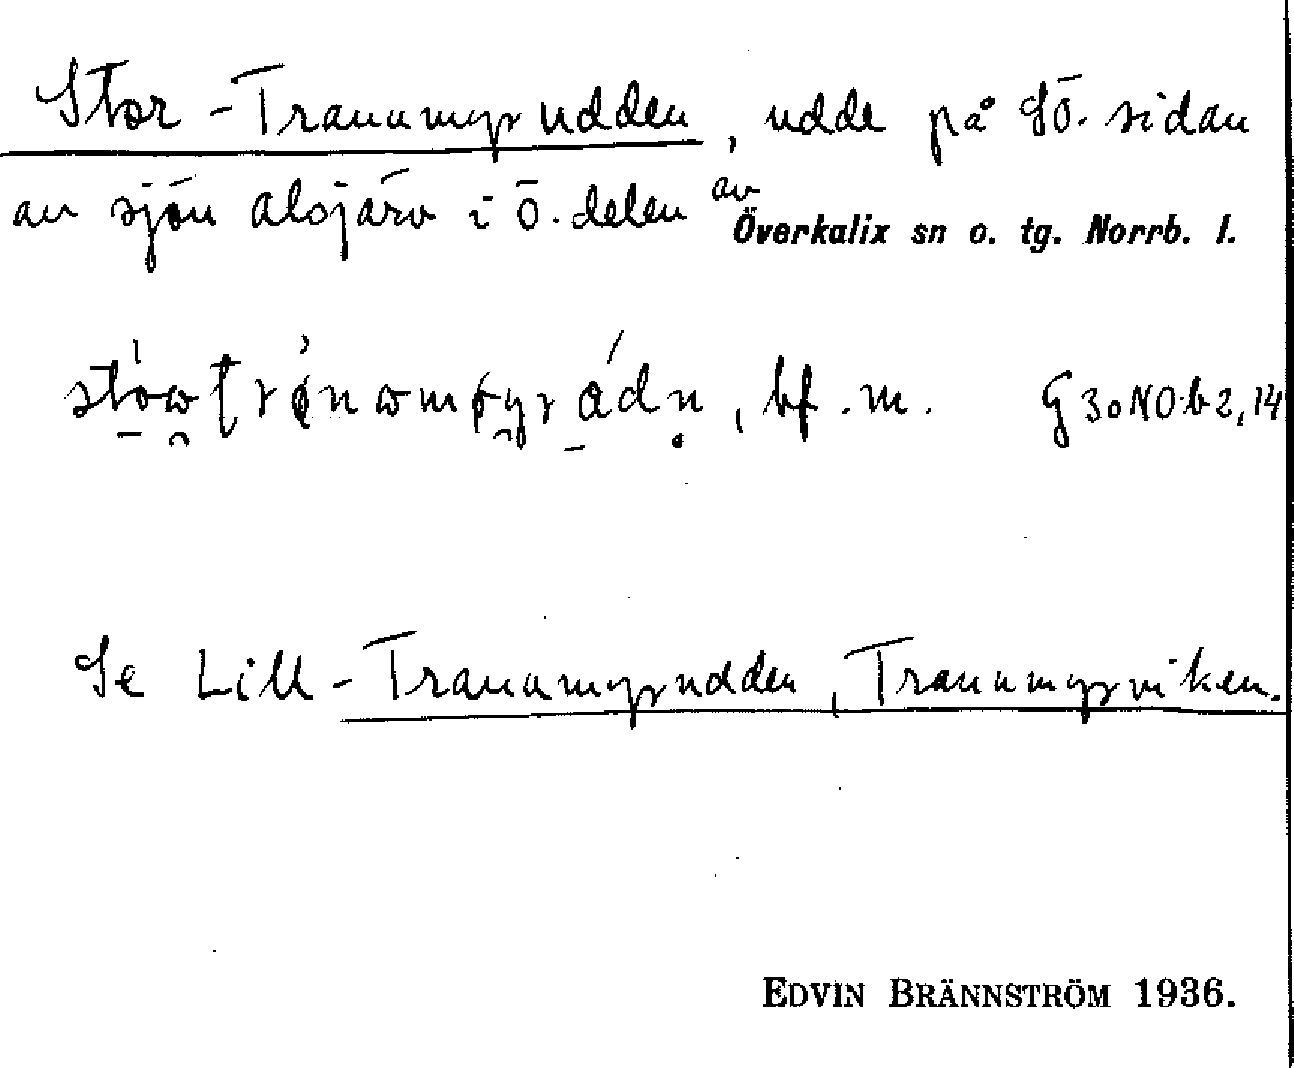 Stor-Tranumyrudden, udde på SÖ. sidan
av sjön Alsjärv i Ö. delen av
Överkalix sn o. tg. Norrb. l.
bf. m. G30NO:b2,14
Se Lill-Tranumyrudden, Tranumyrviken.
EDVIN BRÄNNSTRÖM 1936.